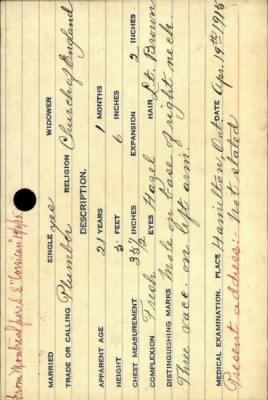 From Montreal per S.S. "Corsican"
MARRIED SINGLE yes WIDOWER
TRADE OR CALLING Plumber RELIGION Church of England
DESCRIPTION.
APPARENT AGE 21 YEARS 1 MONTHS
HEIGHT 5 FEET 6 INCHES
CHEST MEASUREMENT 35½ INCHES EXPANSION 2 INCHES
COMPLEXION Fresh EYES Hazel HAIR Lt. Brown
DISTINGUISHING MARKS Mole on base of right neck
Three vacc. on left arm.
MEDICAL EXAMINATION. PLACE Hamilton, Ont. DATE Apr. 19th, 1915
Present address:- Not stated